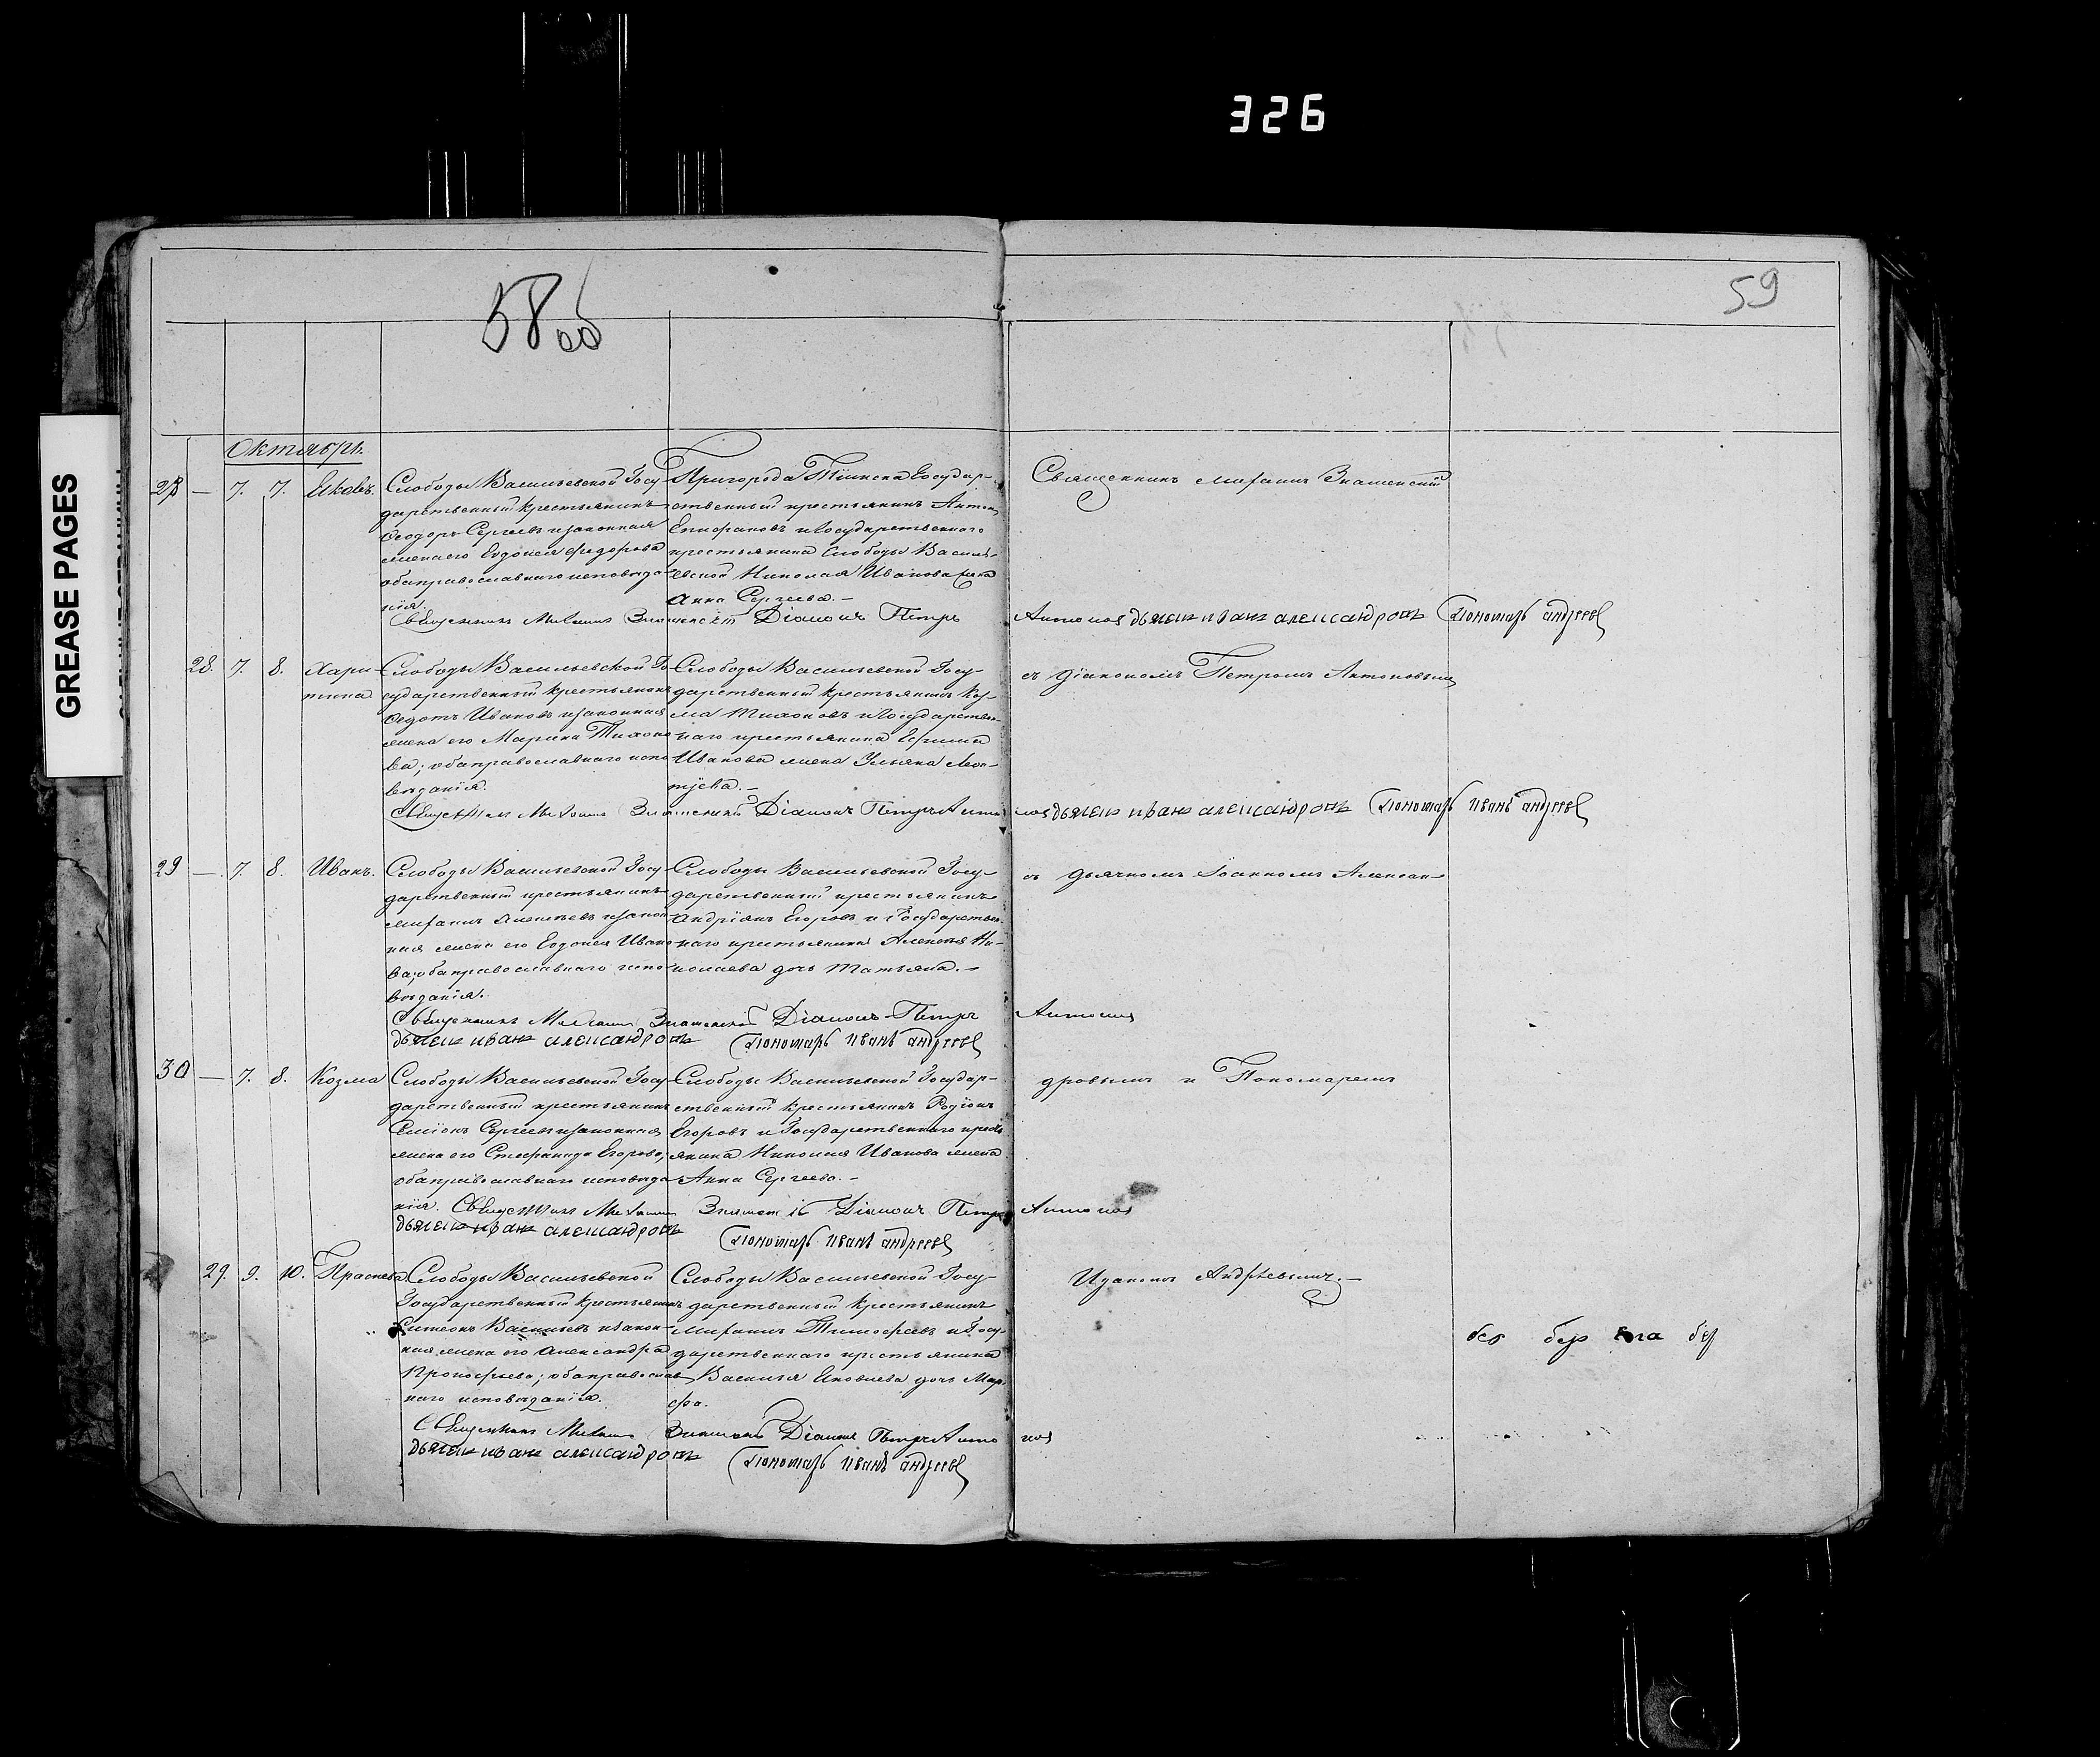 326
GREASE PAGES
58 об
59
Октябрь.
28 — 7. 7. Яковъ.
Слободы Васильевской Госу-
дарственный крестьянинъ
Ѳеодоръ Сергеевъ и законная
жена его Евдокея Федорова
оба православнаго исповѣда-
нія.
Пригорода Тіинска Государ-
ственный крестьянинъ Антонъ
Епифановъ и Государственнаго
крестьянина Слободы Василь-
евской Николая Иванова жена
Анна Сергеева. —
Священникъ Михаилъ Знаменскій
Священникъ Михаилъ Знаменскій Діаконъ Петръ Антоновъ дьячекъ иванъ александровъ Пономарь андреевъ
28. 7. 8. Хари-
тина
Слободы Васильевской Го-
сударственный крестьянинъ
Ѳедотъ Ивановъ и законная
жена его Марина Тихоно-
ва; оба православнаго испо-
вѣданія.
Слободы Васильевской Госу-
дарственный крестьянинъ Коз-
ма Тихоновъ и Государствен-
наго крестьянина
Иванова жена Ульяна Леон-
тьева. —
съ Діакономъ Петромъ Антоновымъ
Священникъ Михаилъ Знаменскій Діаконъ Петръ Антоновъ дьячекъ иванъ александровъ Пономарь иванъ андреевъ
29 — 7. 8. Иванъ.
Слободы Васильевской Госу-
дарственный крестьянинъ
Михаилъ и закон-
ная жена его Евдокея Ивано-
ва; оба православнаго испо-
вѣданія.
Слободы Васильевской Госу-
дарственный крестьянинъ
Андріянъ Егоровъ и Государствен-
наго крестьянина Алексея Ни-
колаева дочь Татьяна. —
съ дьячкомъ Іоанномъ Алексан-
Священникъ Михаилъ Знаменскій Діаконъ Петръ Антоновъ
дьячекъ иванъ александровъ Пономарь иванъ андреевъ
30 — 7. 8. Козма
Слободы Васильевской Госу-
дарственный крестьянинъ
Сергеевъ и законная
жена его Стефанида Егорова;
оба православнаго исповѣда-
нія.
Слободы Васильевской Государ-
ственный крестьянинъ Родіонъ
Егоровъ и Государственнаго кресть-
янина Николая Иванова жена
Анна Сергеева. —
дровымъ и Пономаремъ
Священникъ Михаилъ Знаменскій Діаконъ Петръ Антоновъ
дьячекъ иванъ александровъ
Пономарь иванъ андреевъ
29. 9. 10. Праскева
Слободы Васильевской
Государственный крестьянинъ
Симеонъ Васильевъ и закон-
ная жена его Александра
Прокофьева; оба православ-
наго исповѣданія.
Слободы Васильевской Госу-
дарственный крестьянинъ
Михаилъ Тимофеевъ и Госу-
дарственнаго крестьянина
Василья Яковлева дочь Мар-
фа.
Иваномъ Андрѣевымъ. —
Священникъ Михаилъ Знаменскій Діаконъ Петръ Антоновъ
дьячекъ иванъ александровъ Пономарь иванъ андреевъ